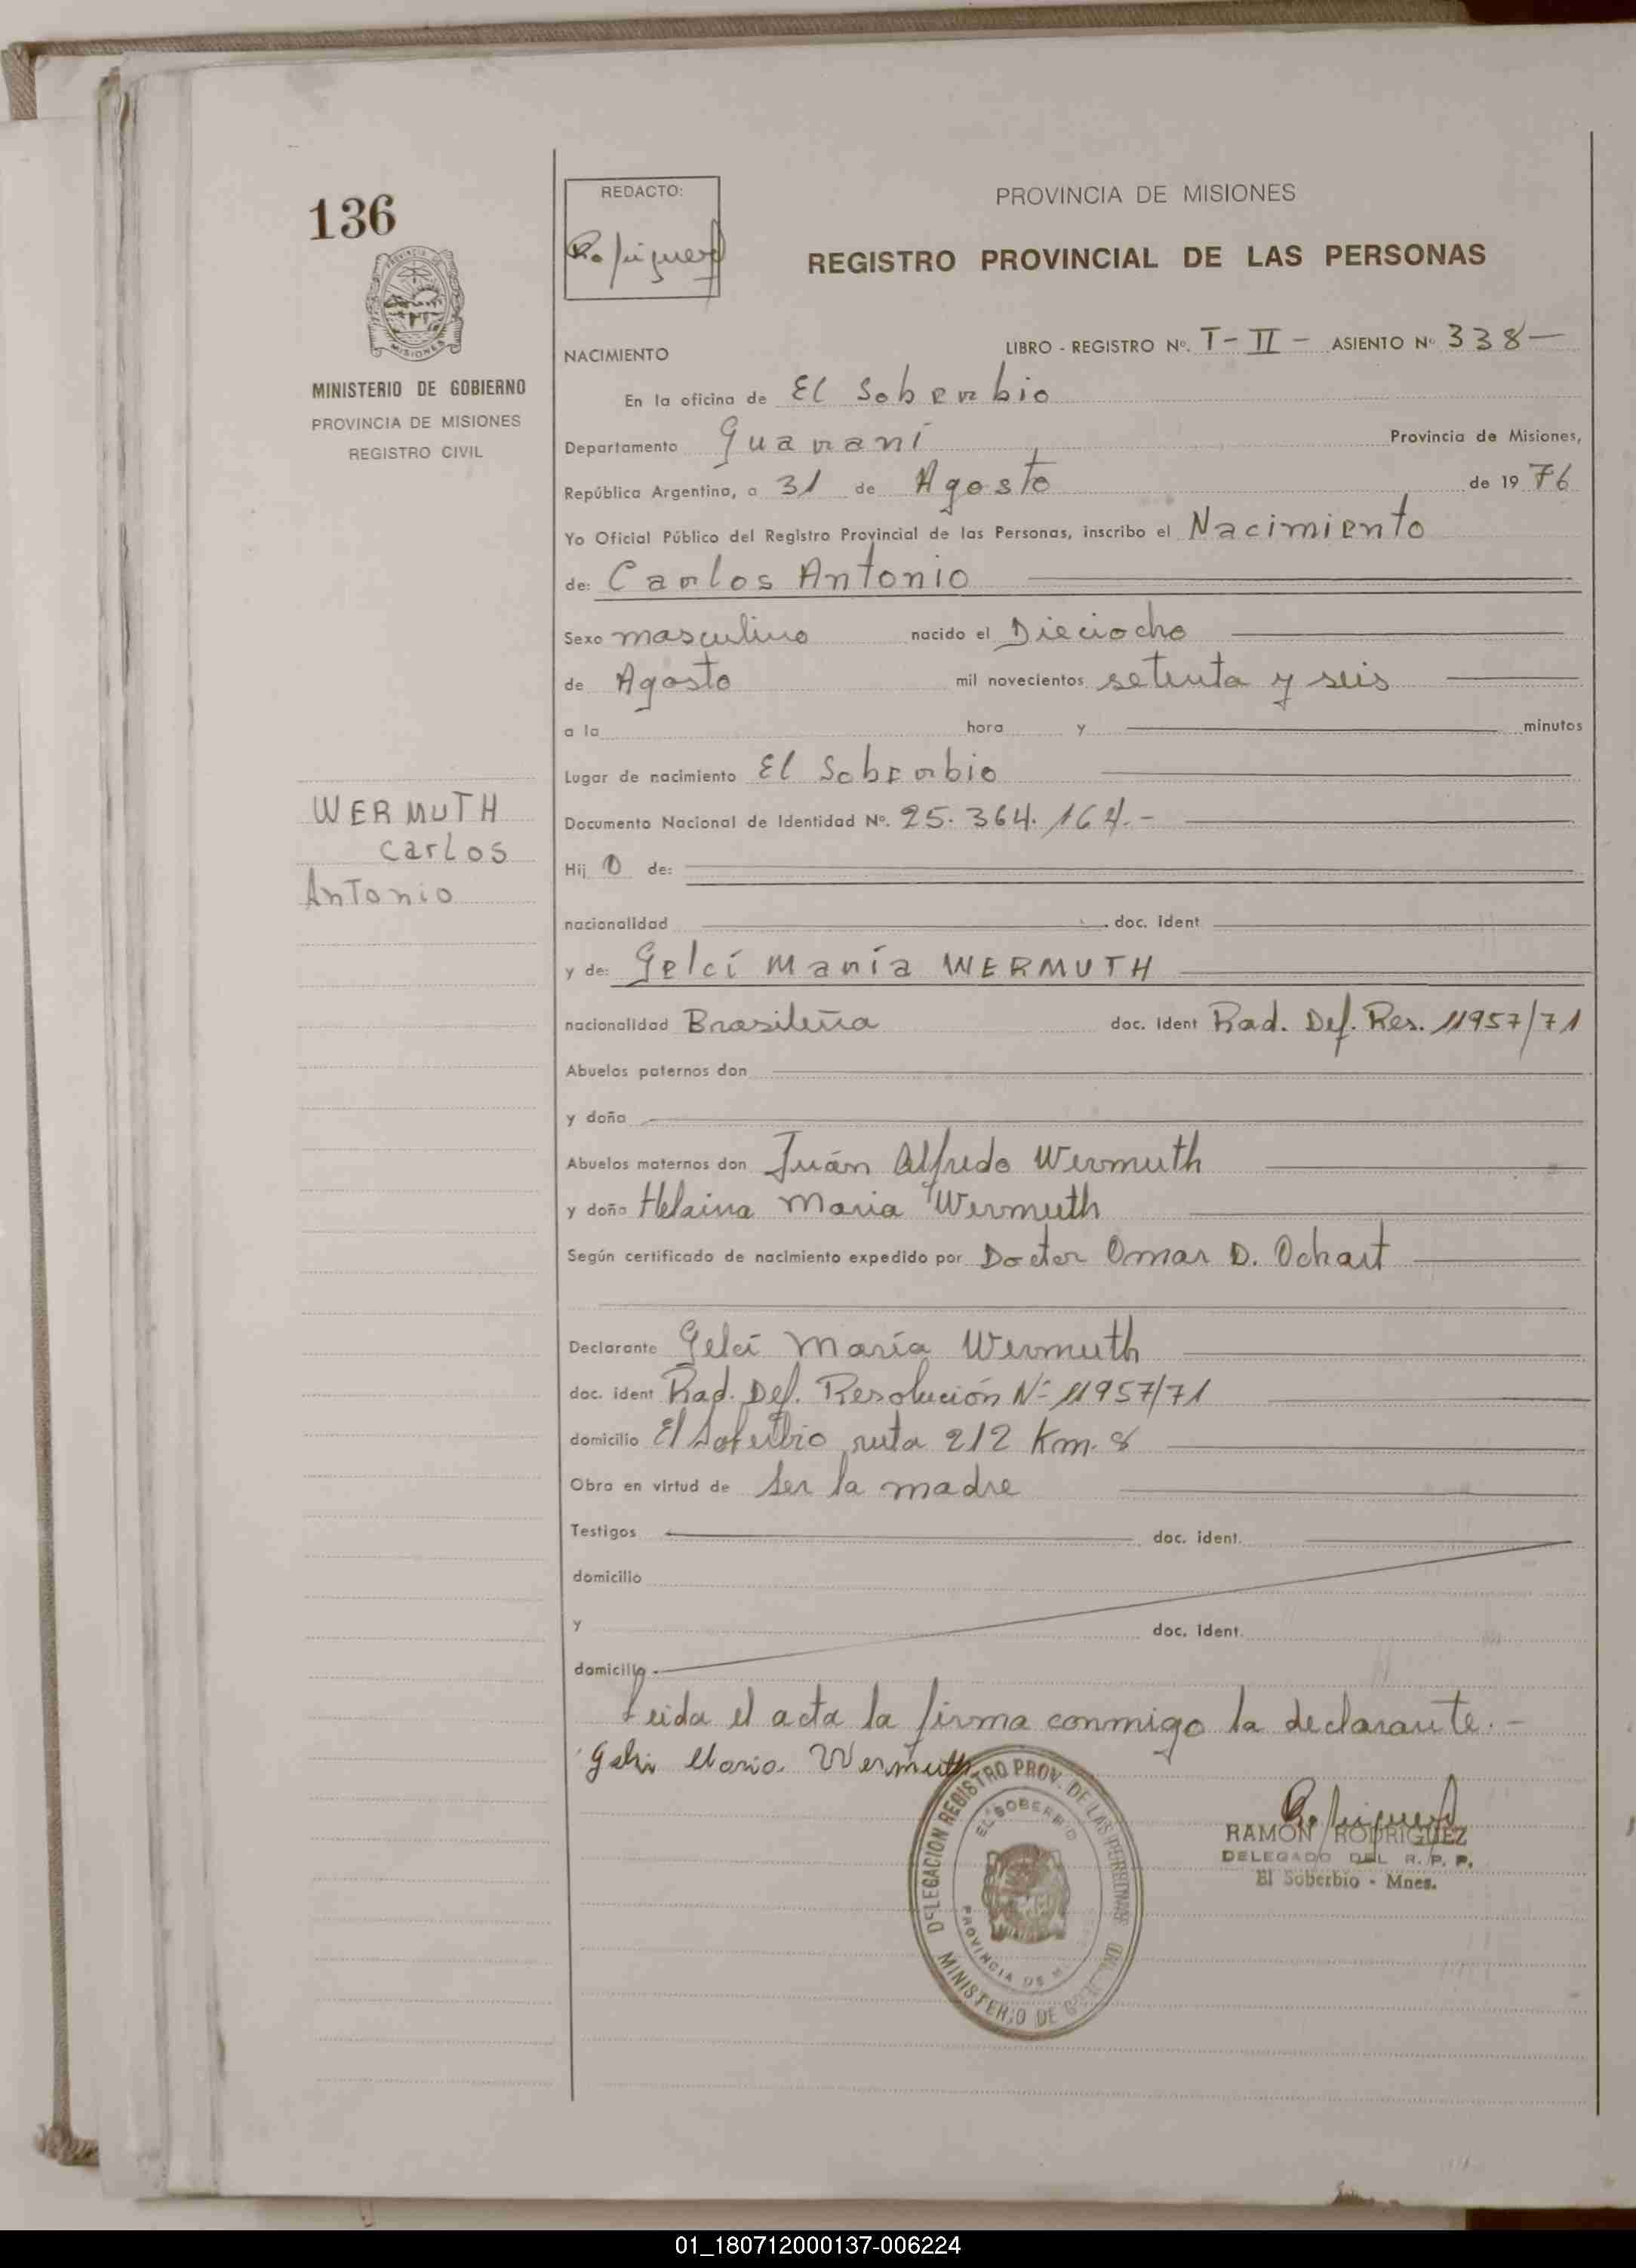 136
REDACTO:
Rodriguez
PROVINCIA DE MISIONES
REGISTRO PROVINCIAL DE LAS PERSONAS
MISIONES
MINISTERIO DE GOBIERNO
PROVINCIA DE MISIONES
REGISTRO CIVIL
NACIMIENTO
LIBRO - REGISTRO Nº. T - II - ASIENTO Nº 338 —
En la oficina de El Soberbio
Departamento Guaraní Provincia de Misiones,
República Argentina, a 31 de Agosto de 19 76
Yo Oficial Público del Registro Provincial de las Personas, inscribo el Nacimiento
de: Carlos Antonio
Sexo masculino nacido el Dieciocho
de Agosto mil novecientos setenta y seis
a la hora y minutos
Lugar de nacimiento El Soberbio
WERMUTH
Carlos
Antonio
Documento Nacional de Identidad Nº. 25.364.164.-
Hij o de:
nacionalidad doc. ident
y de: Gelcí María WERMUTH
nacionalidad Brasileña doc. ident Rad. Def. Res. 11957/71
Abuelos paternos don
y doña
Abuelos maternos don Juán Alfredo Wermuth
y doña Helaina Maria Wermuth
Según certificado de nacimiento expedido por Doctor Omar D. Ochart
Declarante Gelcí María Wermuth
doc. ident Rad. Def. Resolución Nº 11957/71
domicilio El Soberbio ruta 212 Km. 8
Obra en virtud de ser la madre
Testigos doc. ident.
domicilio
y doc. ident.
domicilio
Leida el acta la firma conmigo la declarante. -
Gelci Maria Wermuth
DELEGACION REGISTRO PROV. DE LAS PERSONAS
EL SOBERBIO
PROVINCIA DE M.
MINISTERIO DE
Rodriguez
RAMON RODRIGUEZ
DELEGADO DEL R. P. P.
El Soberbio - Mnes.
01_180712000137-006224